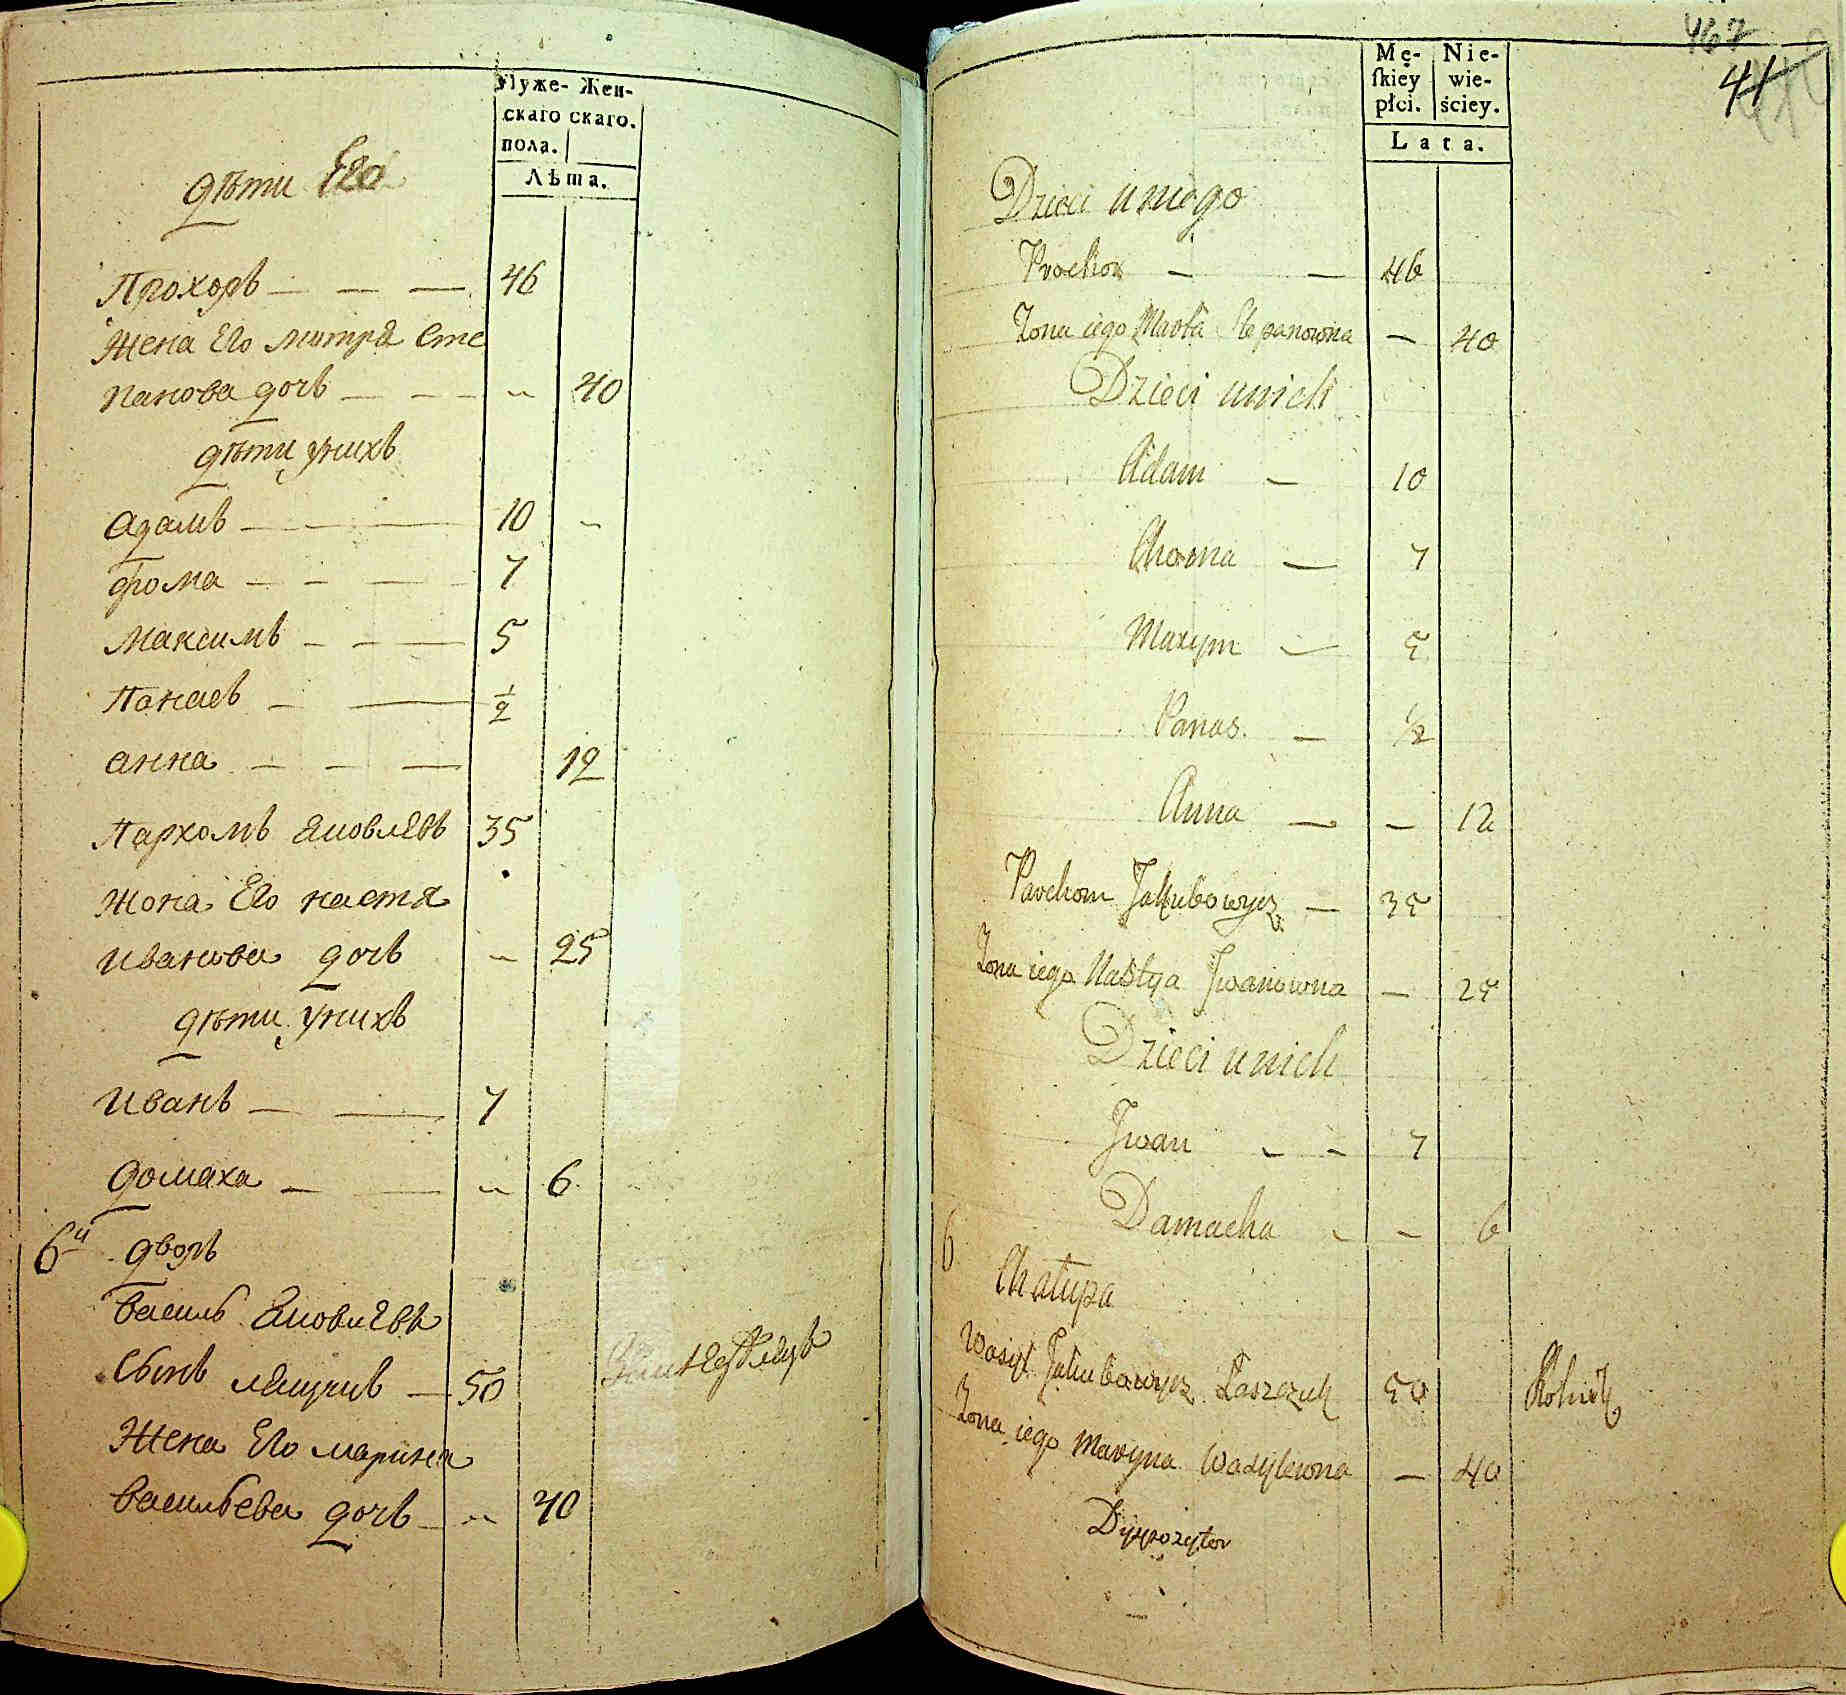 Муже- Жен-
скаго скаго.
пола.
Лѣта.
дѣти Его
Прохоръ — — — 46
Жена Его Сте
панова дочь — — — 40
дѣти унихъ
Адамъ — — — 10
Фома — — — 7
Максимъ — — — 5
Панасъ — — 1/2
Анна — — — 12
Пархомъ Яковлевъ 35
Жона Его настя
Иванова дочь — 25
дѣти унихъ
Иванъ — — 7
Домаха — — 6
6й дворъ
Василь Яковлевъ
Сынъ — 50
Жена Его марина
Васильева дочь — 40
467
41
Mę- Nie-
skiéy wie-
płci. ściey.
Lata.
Dzieci uniego
Prochor — — 46
Zona iego Stepanowna — 40
Dzieci unich
Adam — 10
Choma — 7
Maxym — 5
Panas. — 1/2
Anna — — 12
Parchom Jakubowycz — 35
Zona iego Nastya Jwanowna — 25
Dzieci unich
Jwan - - 7
Damacha - - 6
6
Chałupa
Wasyl Jakubowycz Łaszczuk 50 Rolnik
Zona iego Maryna Wasylewna — 40
Dyspozytor